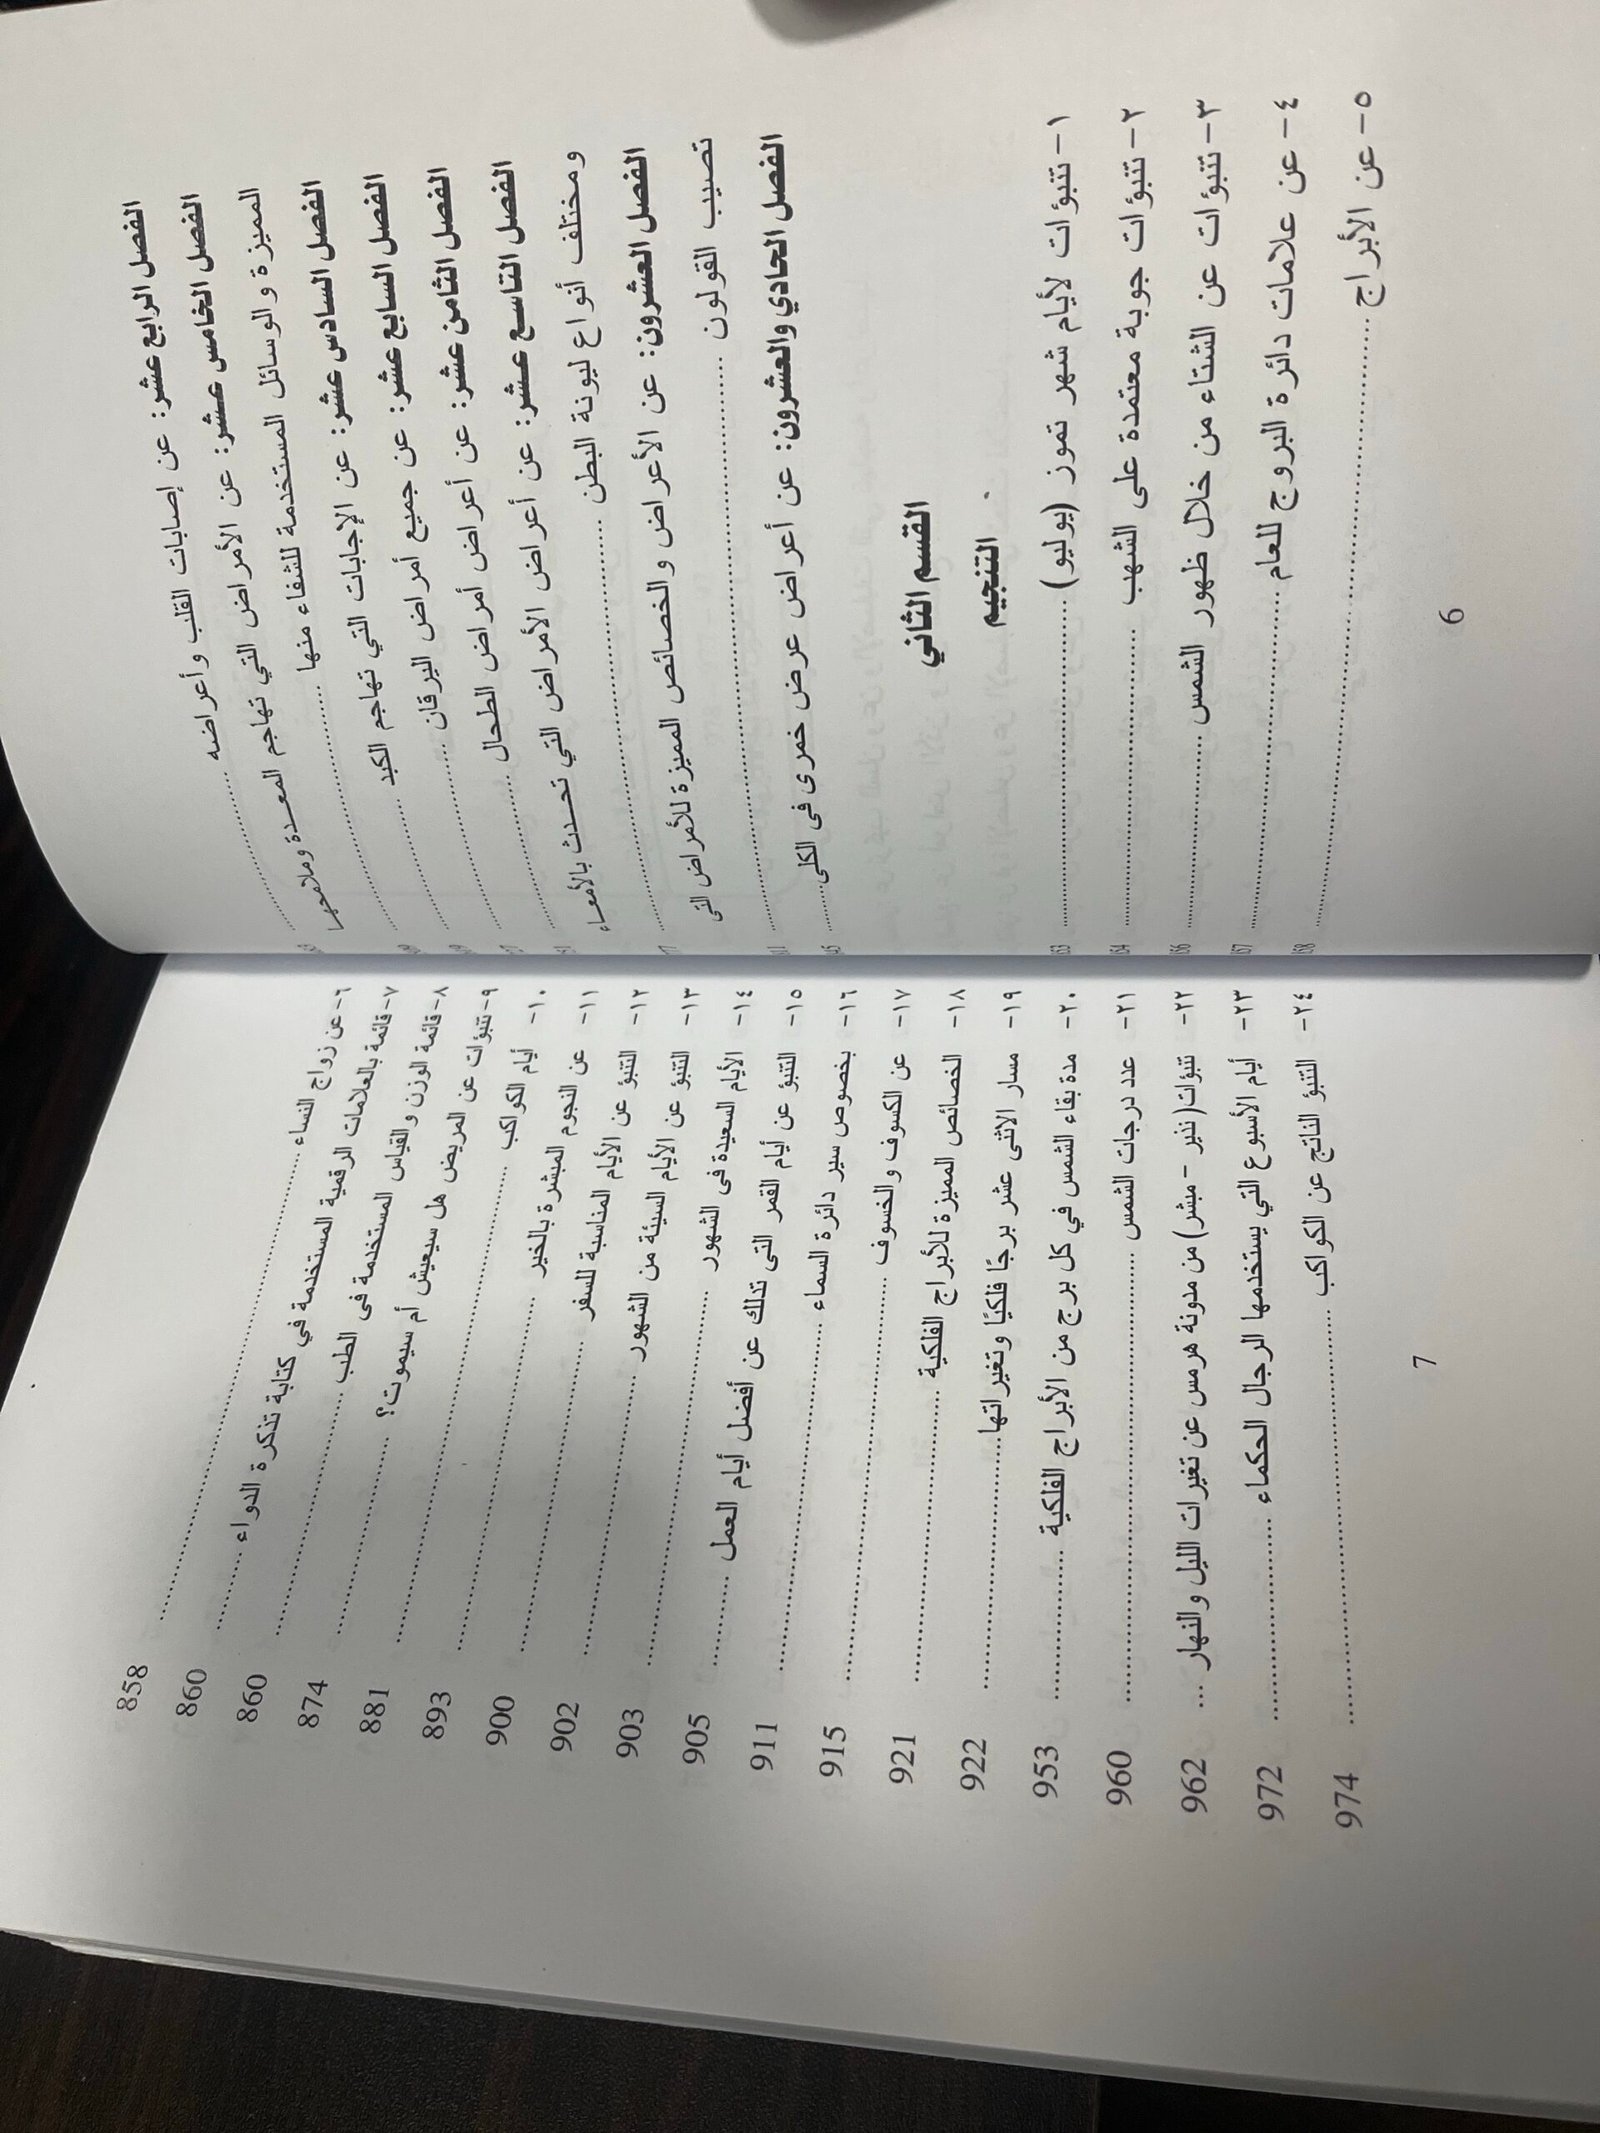 الفصل الرابع عشر: عن إصابات القلب وأعراضه ..........
الفصل الخامس عشر: عن الأمراض التي تهاجم المعدة وملامحها
المميزة والوسائل المستخدمة للشفاء منها ..........
الفصل السادس عشر: عن الإجابات التي تهاجم الكبد ..........
الفصل السابع عشر: عن جميع أمراض اليرقان ..........
الفصل الثامن عشر: عن أعراض أمراض الطحال ..........
الفصل التاسع عشر: عن أعراض الأمراض التي تحدث بالأمعاء
ومختلف أنواع ليونة البطن ..........
الفصل العشرون: عن الأعراض والخصائص المميزة للأمراض التى
تصيب القولون ..........
الفصل الحادي والعشرون: عن أعراض عرض خمرى فى الكلى
القسم الثاني
التنجيم
١- تنبؤات لأيام شهر تموز (يوليو) ..........
٢- تنبؤات جوية معتمدة على الشهب ..........
٣- تنبؤات عن الشتاء من خلال ظهور الشمس ..........
٤- عن علامات دائرة البروج للعام ..........
٥- عن الأبراج ..........
6
٦- عن زواج النساء .......... 858
٧- قائمة بالعلامات الرقمية المستخدمة في كتابة تذكرة الدواء .......... 860
٨- قائمة الوزن والقياس المستخدمة فى الطب .......... 860
٩- تنبؤات عن المريض هل سيعيش أم سيموت؟ .......... 874
١٠- أيام الكواكب .......... 881
١١- عن النجوم المبشرة بالخير .......... 893
١٢- التنبؤ عن الأيام المناسبة للسفر .......... 900
١٣- التنبؤ عن الأيام السيئة من الشهور .......... 902
١٤- الأيام السعيدة فى الشهور .......... 903
١٥- التنبؤ عن أيام القمر التى تدلك عن أفضل أيام العمل .......... 905
١٦- بخصوص سير دائرة السماء .......... 911
١٧- عن الكسوف والخسوف .......... 915
١٨- الخصائص المميزة للأبراج الفلكية .......... 921
١٩- مسار الاثنى عشر برجًا فلكيًا وتغيراتها .......... 922
٢٠- مدة بقاء الشمس في كل برج من الأبراج الفلكية .......... 953
٢١- عدد درجات الشمس .......... 960
٢٢- تنبؤات (نذير - مبشر) من مدونة هرمس عن تغيرات الليل والنهار ... 962
٢٣- أيام الأسبوع التي يستخدمها الرجال الحكماء .......... 972
٢٤- التنبؤ الناتج عن الكواكب .......... 974
7